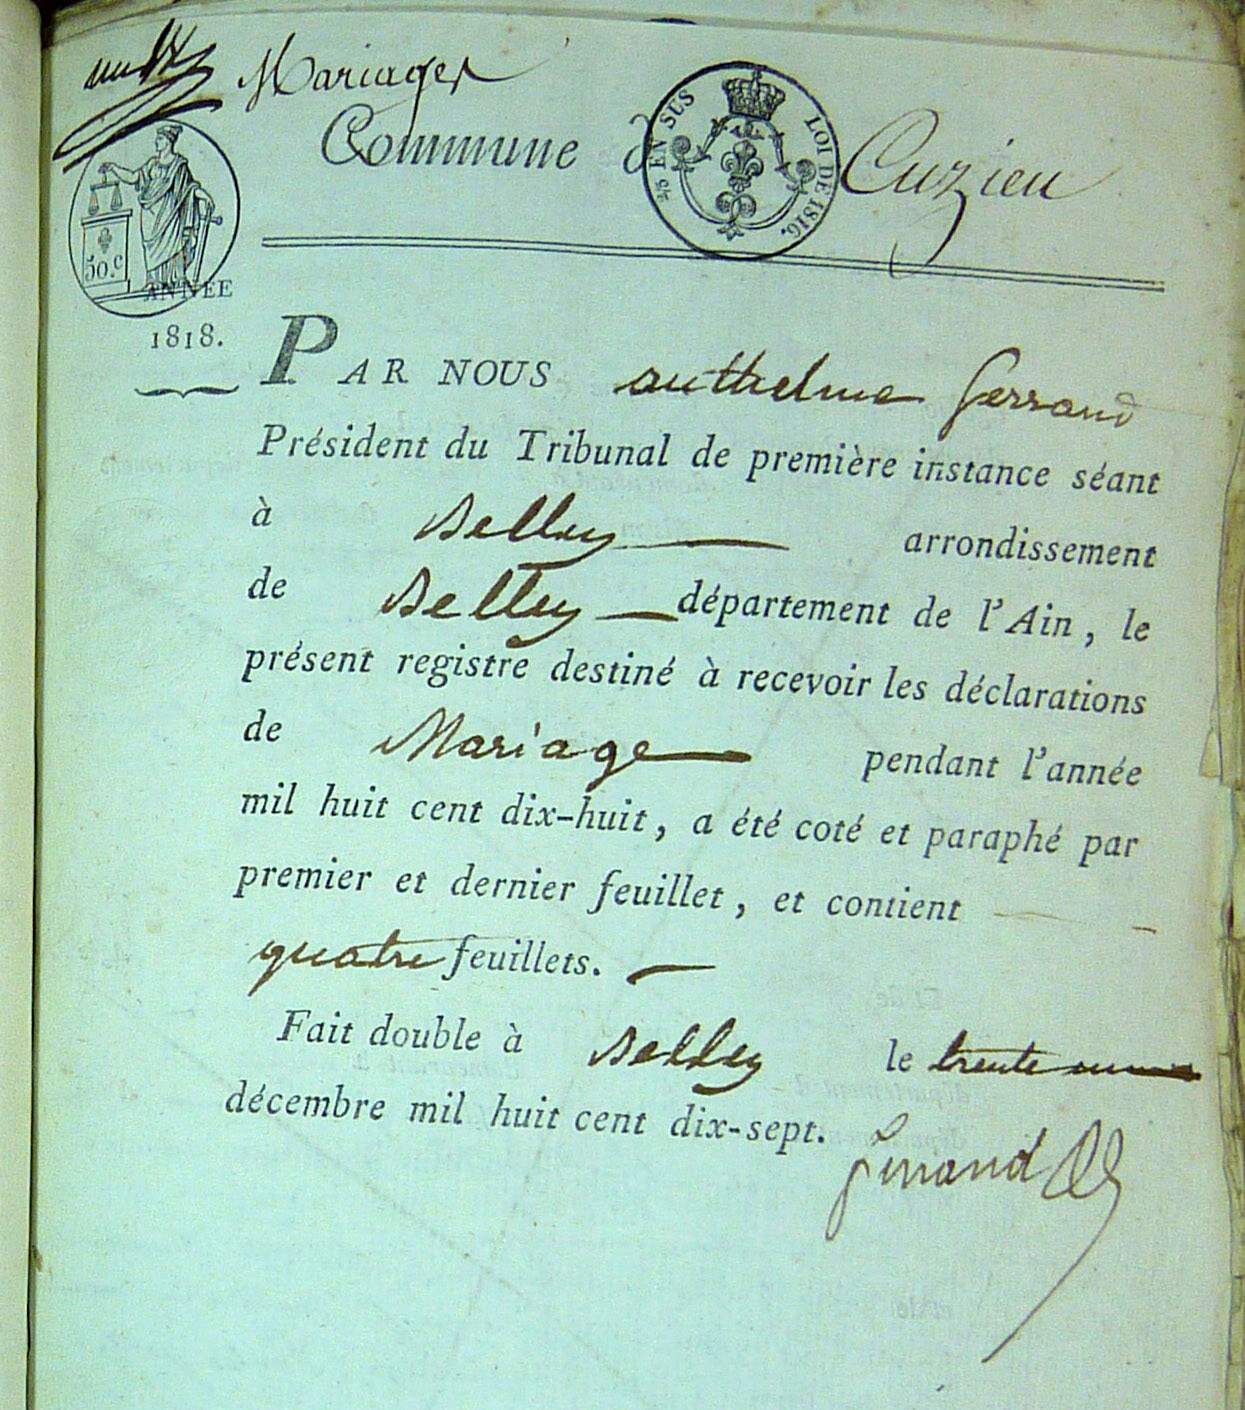 Mariages
Commune de Cuzieu
2/5 EN SUS LOI DE 1816.
50.c
ANNÉE
1818.
PAR NOUS Anthelme ferrand
Président du Tribunal de première instance séant
à Belley arrondissement
de Belley département de l'Ain, le
présent registre destiné à recevoir les déclarations
de Mariage pendant l'année
mil huit cent dix-huit, a été coté et paraphé par
premier et dernier feuillet, et contient
quatre feuillets.
Fait double à Belley le trente un
décembre mil huit cent dix-sept.
ferrand